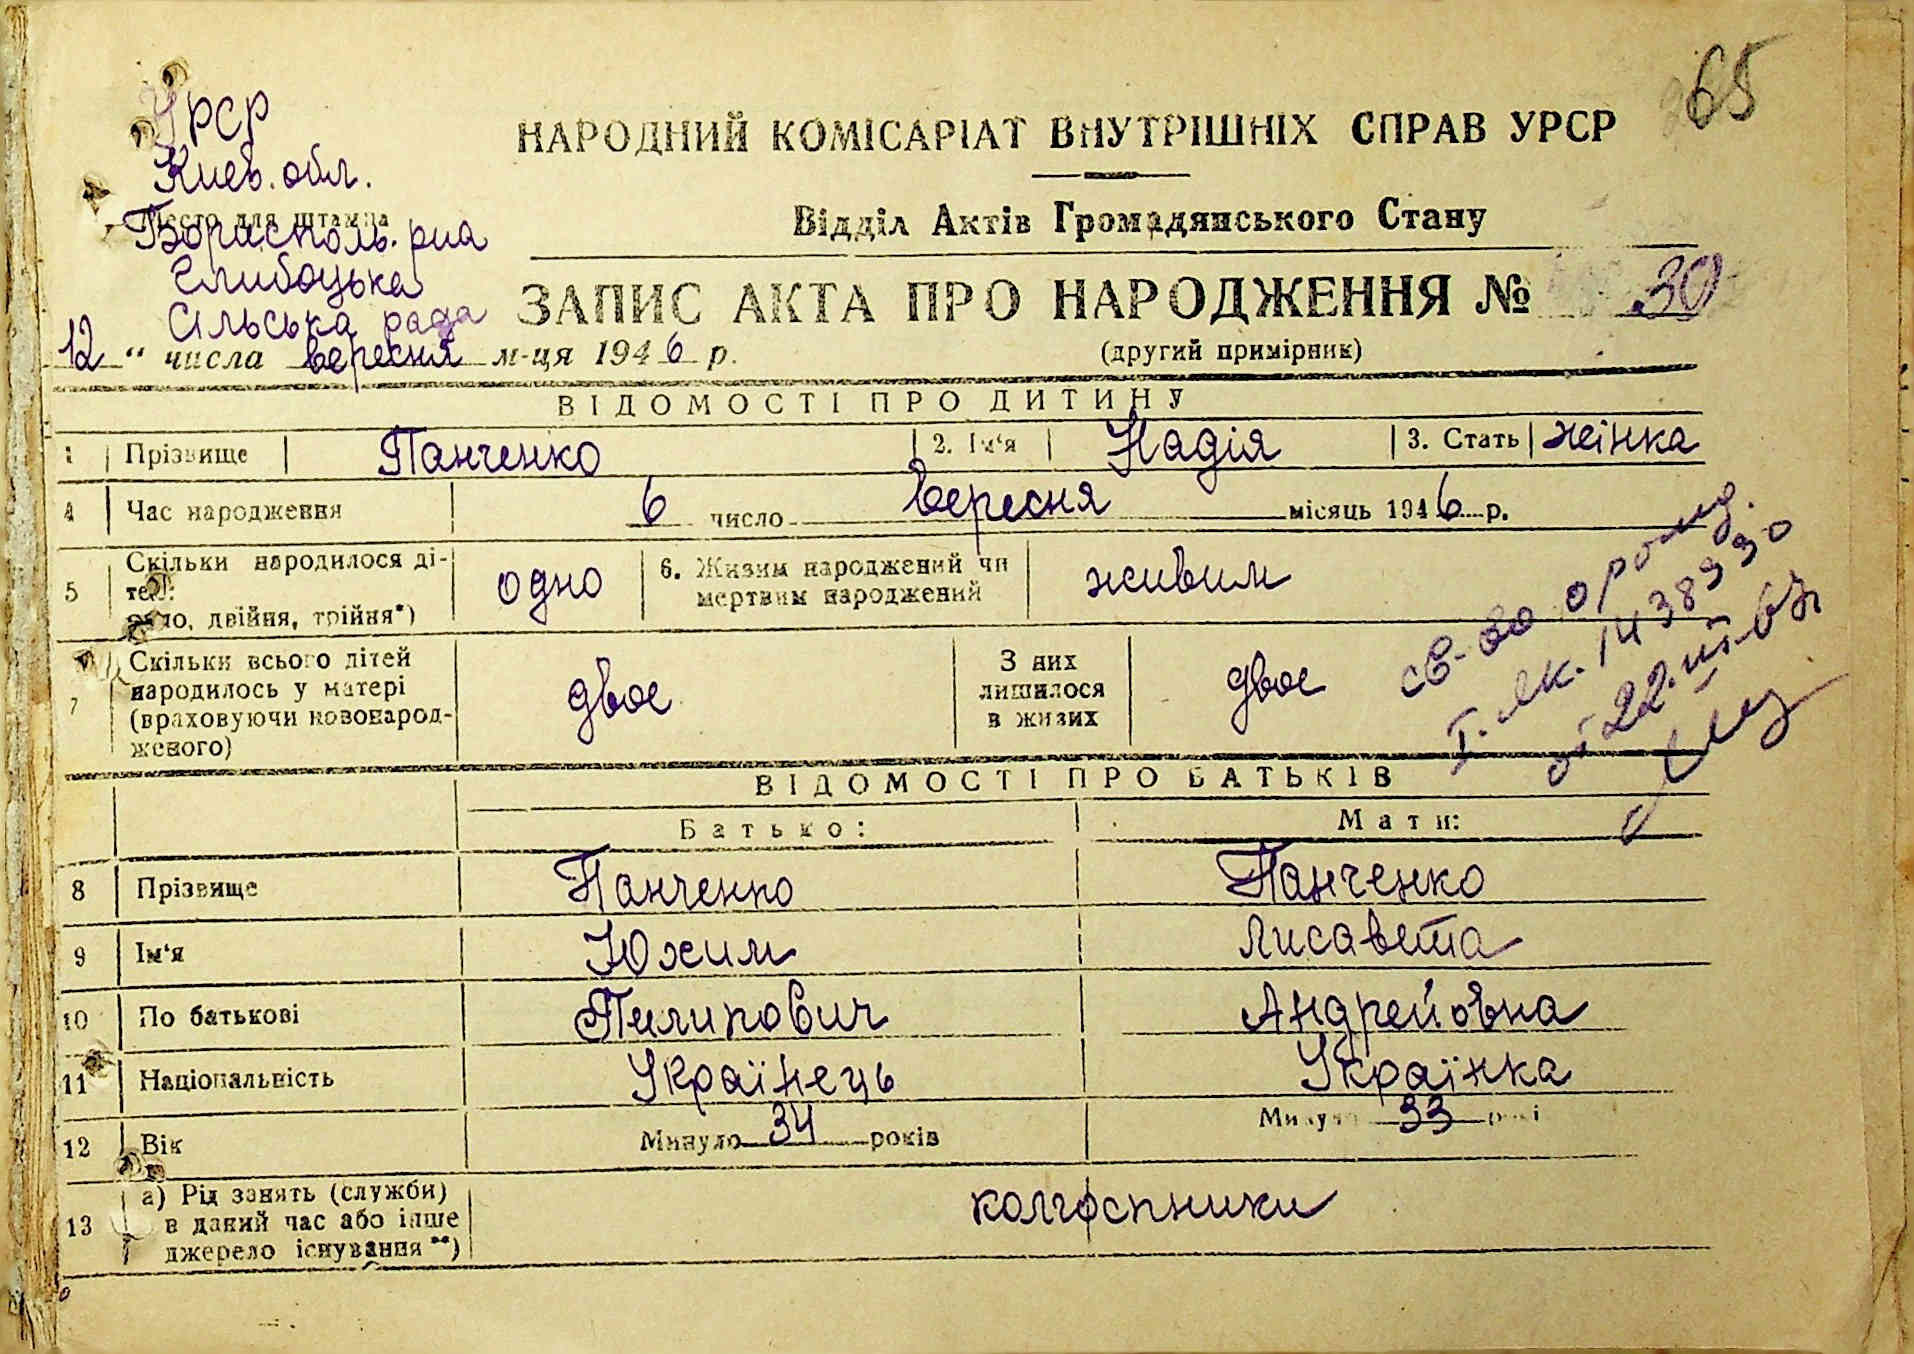 265
УРСР
Киев. обл.
Место для штампа
Борисполь. р-на
Глибоцька
Сільська рада
НАРОДНИЙ КОМІСАРІАТ ВНУТРІШНІХ СПРАВ УРСР
Відділ Актів Громадянського Стану
ЗАПИС АКТА ПРО НАРОДЖЕННЯ № 30
12 " числа вересня м-ця 1946 р.
(другий примірник)
ВІДОМОСТІ ПРО ДИТИНУ
1 Прізвище Панченко 2. Ім'я Надія 3. Стать жінка
4 Час народження 6 число вересня місяць 1946 р.
5 Скільки народилося ді-
тей:
одно, двійня, трійня*) одно
6. Живим народжений чи
мертвим народжений живим
7 Скільки всього дітей
народилось у матері
(враховуючи новонарод-
женого) двоє
З них
лишилося
в живих двоє
св-во о рожд.
І. ЛК. 1438990
от 22.III-67
ВІДОМОСТІ ПРО БАТЬКІВ
Батько: Мати:
8 Прізвище Панченко Панченко
9 Ім'я Юхим Лисавета
10 По батькові Пилипович Андрейовна
11 Національність Українець Українка
12 Вік Минуло 34 років Минуло 33 років
13 а) Рід занять (служби)
в даний час або інше
джерело існування**) колгоспники